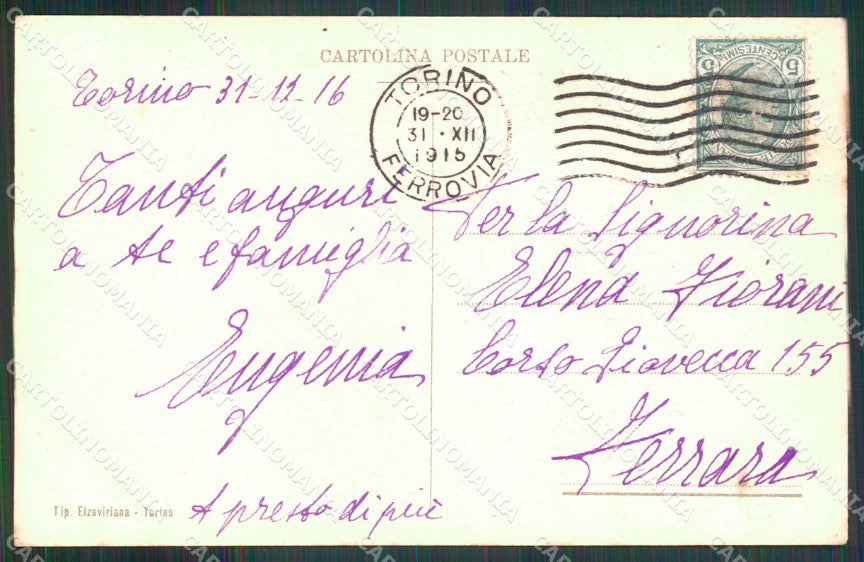 CARTOLINA POSTALE
Torino 31-12-16
TORINO
19-20
31 · XII
1915
FERROVIA
5 CENTESIMI 5
Tanti auguri
a te e famiglia
Eugenia
A presto di più
Per la Signorina
Elena Fiorani
Corso Giovecca 155
Ferrara
Tip. Elzeviriana - Torino
CARTOLINOMANIA